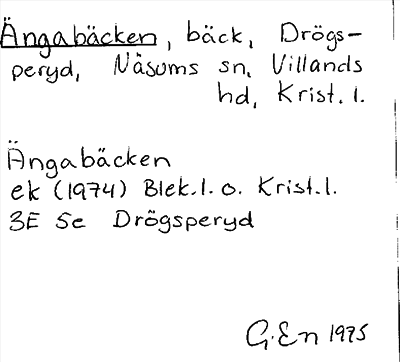 Ängabäcken, bäck, Drögs-
peryd, Näsums sn, Villands
hd, Krist. l.
Ängabäcken
ek (1974) Blek. l. o. Krist. l.
3E 5e Drögsperyd
G. En 1975